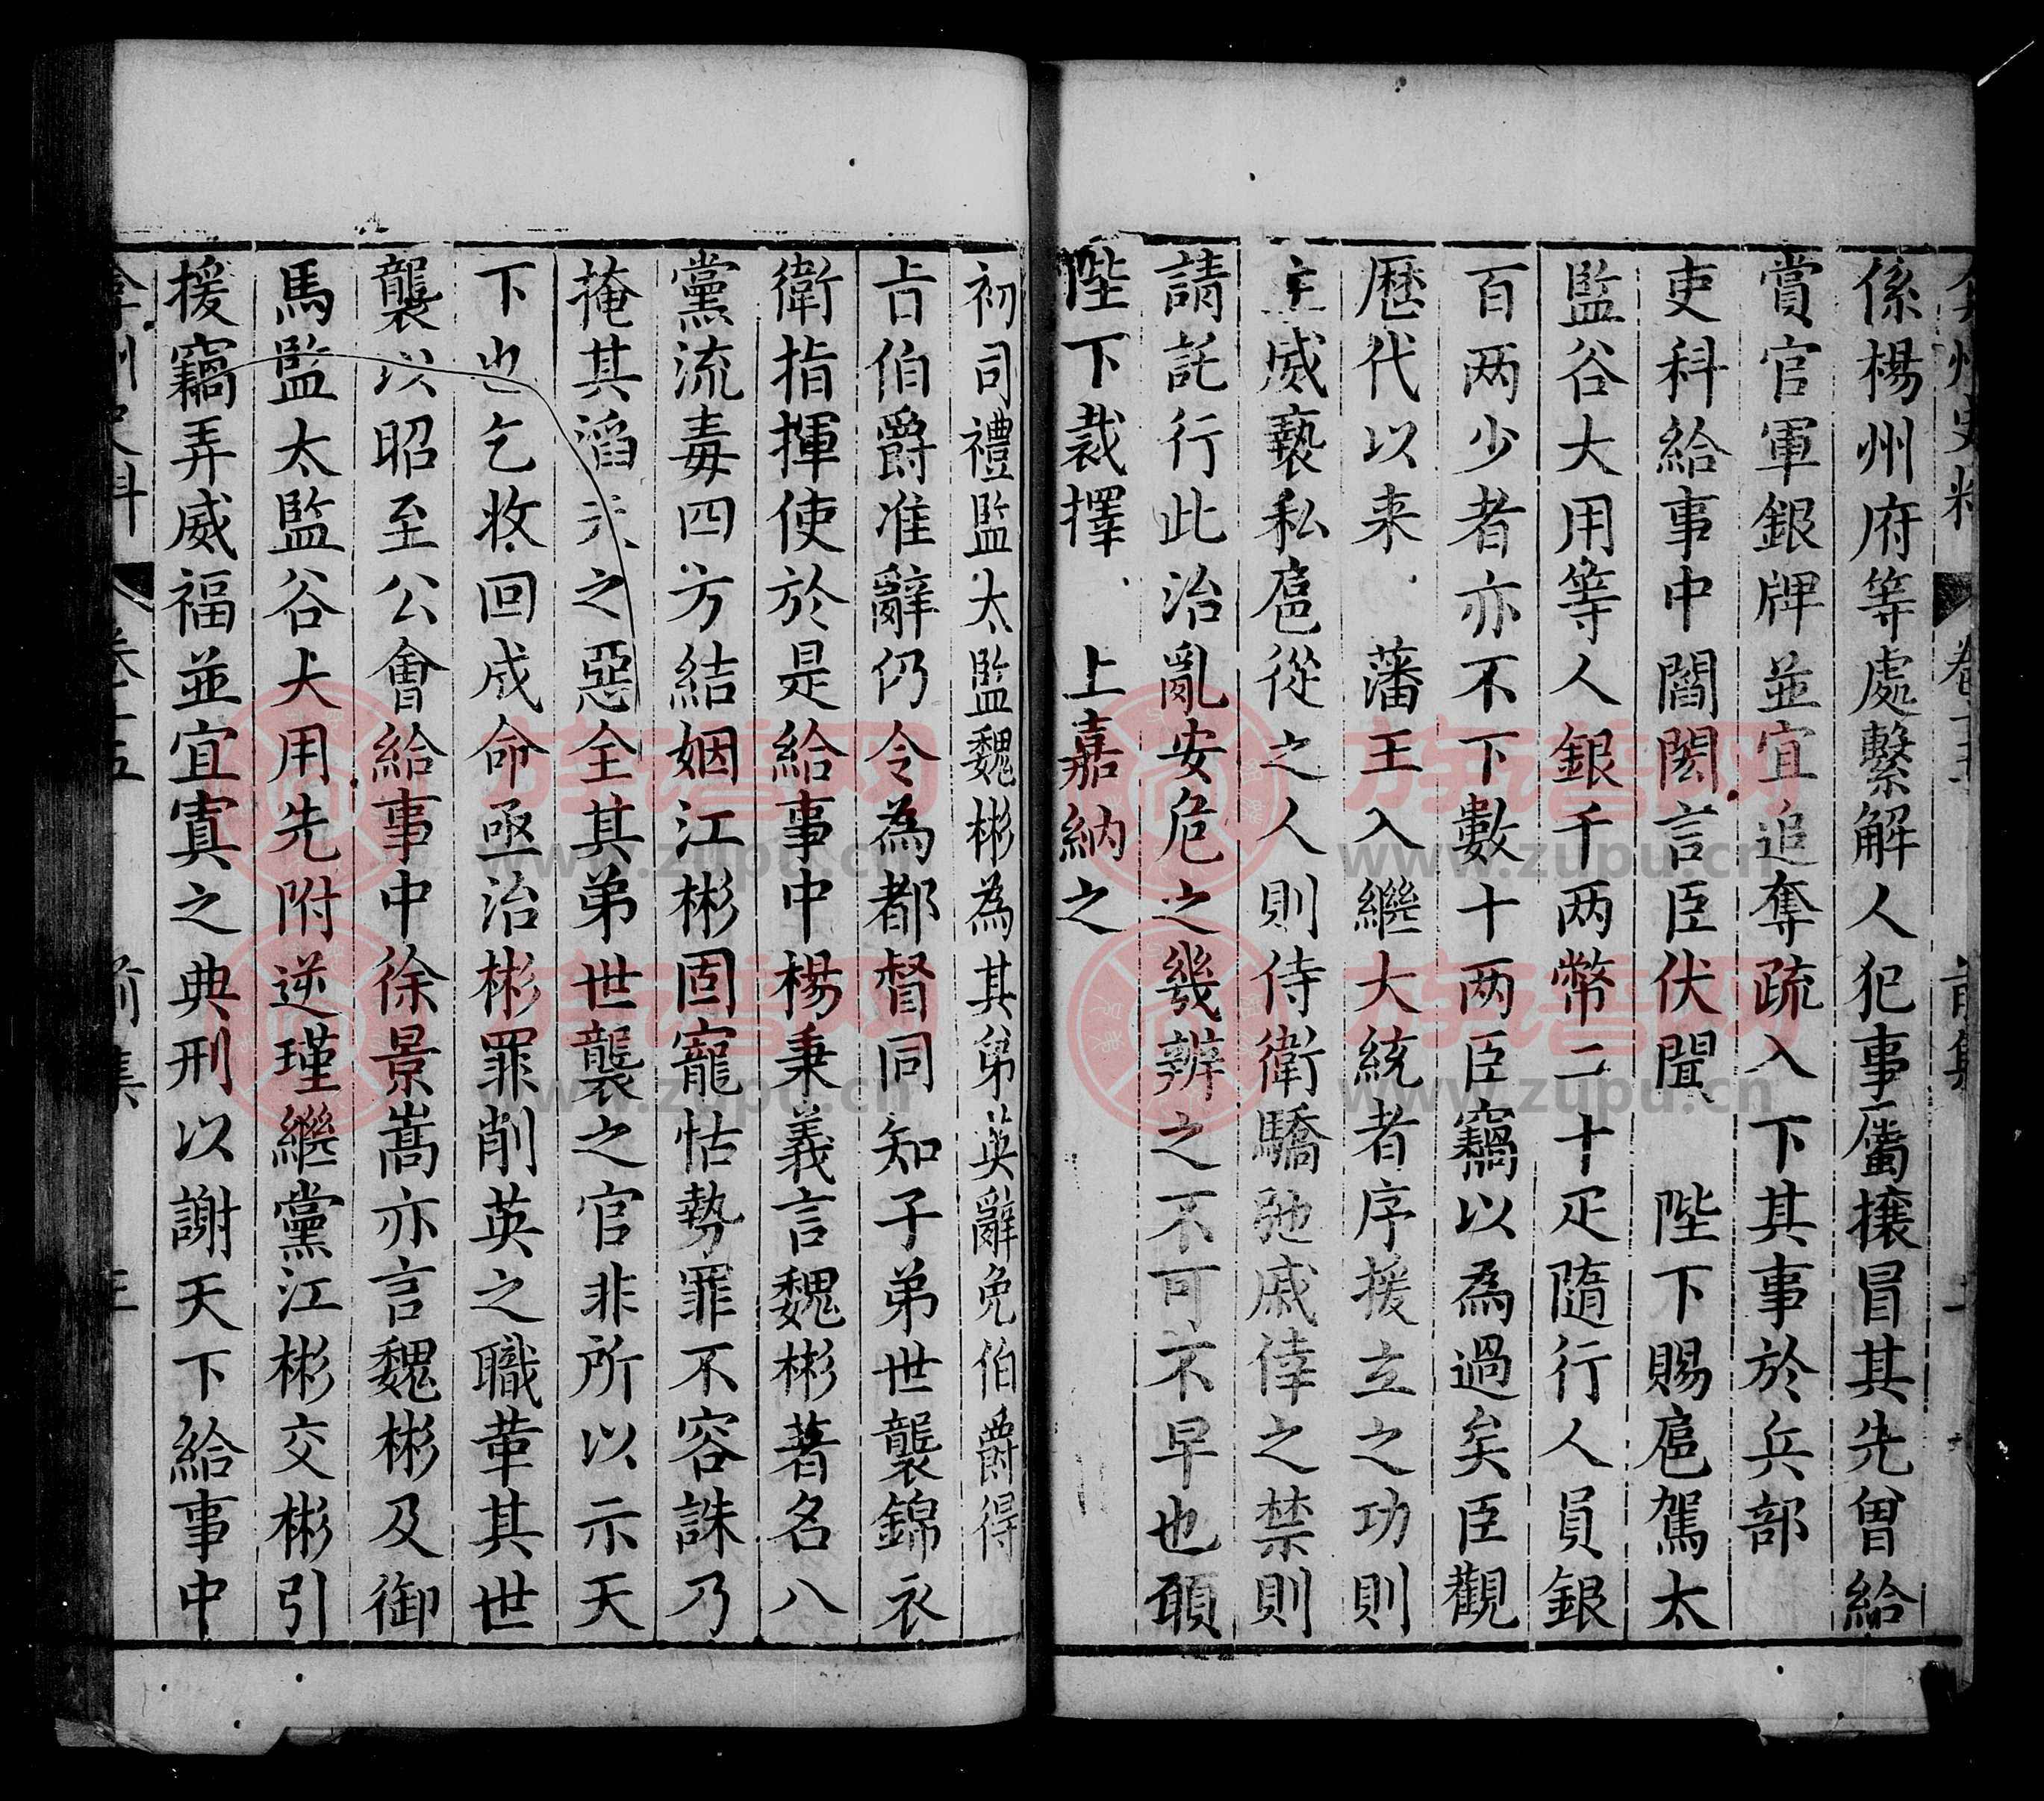 弇州史料 卷十五 前集
係楊州府等處繫解人犯事屬攘冒其先曾給
賞官軍銀牌並宜追奪疏入下其事於兵部
吏科給事中閻閎言臣伏聞 陛下賜扈駕太
監谷大用等人銀千两幣二十疋隨行人員銀
百两少者亦不下數十两臣竊以為過矣臣觀
歷代以来 藩王入繼大統者序援立之功則
主威褻私扈從之人則侍衛驕弛戚倖之禁則
請託行此治亂安危之幾辨之不可不早也頋
陛下裁擇 上嘉納之
初司禮監太監魏彬為其弟英辭免伯爵得
㫖伯爵准辭仍令為都督同知子弟世襲錦衣
衛指揮使於是給事中楊秉義言魏彬著名八
黨流毒四方結姻江彬固寵怙勢罪不容誅乃
掩其滔天之惡全其弟世襲之官非所以示天
下也乞收回成命亟治彬罪削英之職革其世
襲以昭至公會給事中徐景嵩亦言魏彬及御
馬監太監谷大用先附逆瑾繼黨江彬交彬引
援竊弄威福並宜寘之典刑以謝天下給事中
弇州史料 卷十五 前集 三
族譜网
www.zupu.cn
族譜网
www.zupu.cn
族譜网
www.zupu.cn
族譜网
www.zupu.cn